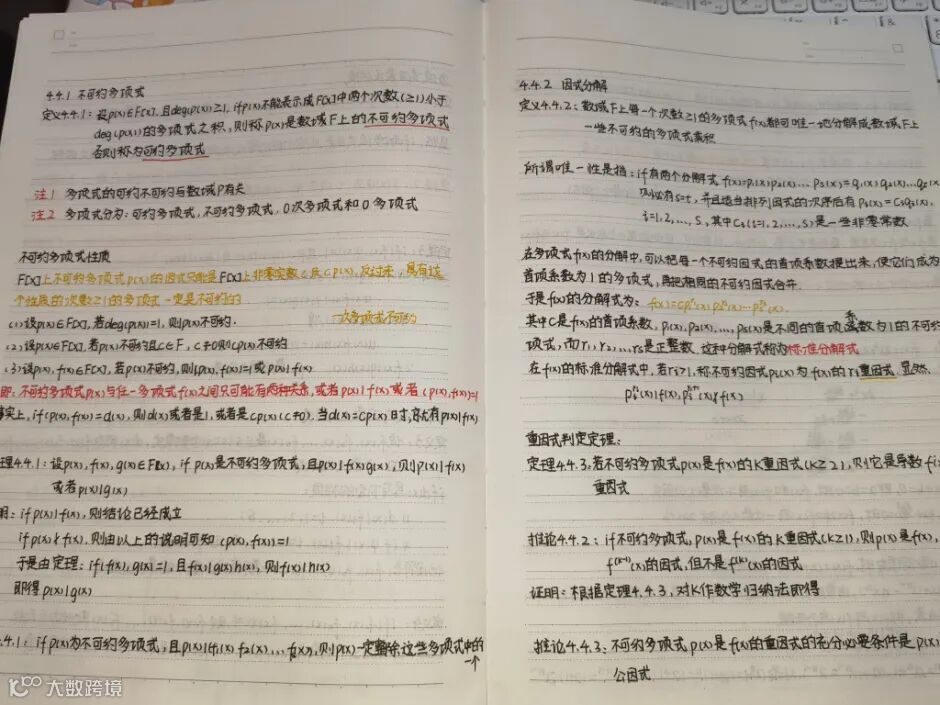 4.4.1 不可约多项式
定义4.4.1：设p(x)∈F[x]，且deg(p(x))≥1，if p(x)不能表示成F[x]中两个次数(≥1)小于
deg(p(x))的多项式之积，则称p(x)是数域F上的不可约多项式
否则称为可约多项式
注1 多项式的可约不可约与数域P有关
注2 多项式分为：可约多项式，不可约多项式，0次多项式和0多项式
不可约多项式性质
F[x]上不可约多项式p(x)的因式只能是F[x]上非零常数c与cp(x)，反过来，具有这
个性质的次数≥1的多项式一定是不可约的
(1)设p(x)∈F[x]，若deg(p(x))=1，则p(x)不可约. 一次多项式不可约
(2)设p(x)∈F[x]，若p(x)不可约且c∈F，c≠0则cp(x)不可约
(3)设p(x)，f(x)∈F[x]，若p(x)不可约，则(p(x),f(x))=1或p(x)|f(x)
即：不可约多项式p(x)与任一多项式f(x)之间只可能有两种关系，或者p(x)|f(x)或者(p(x),f(x))=1
实上，if(p(x),f(x))=d(x)，则d(x)或者是1，或者是cp(x)(c≠0)，当d(x)=cp(x)时，就有p(x)|f(x)
理4.4.1：设p(x)，f(x)，g(x)∈F[x]，if p(x)是不可约多项式，且p(x)|f(x)g(x)，则p(x)|f(x)
或者p(x)|g(x)
明：if p(x)|f(x)，则结论已经成立
if p(x)∤f(x)，则由以上的说明可知(p(x),f(x))=1
于是由定理：if(f(x),g(x))=1，且f(x)|g(x)h(x)，则f(x)|h(x)
即得p(x)|g(x)
4.4.1：if p(x)为不可约多项式，且p(x)|(f₁(x) f₂(x),…fₛ(x))，则p(x)一定整除这些多项式中的
一个
4.4.2 因式分解
定义4.4.2：数域F上每一个次数≥1的多项式f(x)都可唯一地分解成数域F上
一些不可约的多项式乘积
所谓唯一性是指：if有两个分解式f(x)=p₁(x)p₂(x)…pₛ(x)=q₁(x)q₂(x)…
则必有s=t，并且适当排列因式的次序后有pₛ(x)=Cₛqₛ(x)，
i=1,2,…,s，其中Cᵢ(i=1,2,…,s)是一些非零常数
在多项式f(x)的分解中，可以把每一个不可约因式的首项系数提出来，使它们成为
首项系数为1的多项式，再把相同的不可约因式合并.
于是f(x)的分解式为：f(x)=cp₁^r₁(x)p₂^r₂(x)…pₛ^rₛ(x).
其中C是f(x)的首项系数，p₁(x),p₂(x),…,pₛ(x)是不同的首项系数为1的不可约
项式，而r₁,r₂,…,rₛ是正整数. 这种分解式称为标准分解式
在f(x)的标准分解式中，若rᵢ>1，称不可约因式pᵢ(x)为f(x)的rᵢ重因式. 显然，
重因式判定定理：
定理4.4.3，若不可约多项式p(x)是f(x)的k重因式(k≥2)，则它是导数
重因式
推论4.4.2：if不可约多项式，p(x)是f(x)的k重因式(k≥1)，则p(x)是f(x)，
f⁽ᵏ⁻¹⁾(x)的因式，但不是f⁽ᵏ⁾(x)的因式
证明：根据定理4.4.3，对k作数学归纳法即得
推论4.4.3：不可约多项式p(x)是f(x)的重因式的充分必要条件是p(x)
公因式
大数跨境